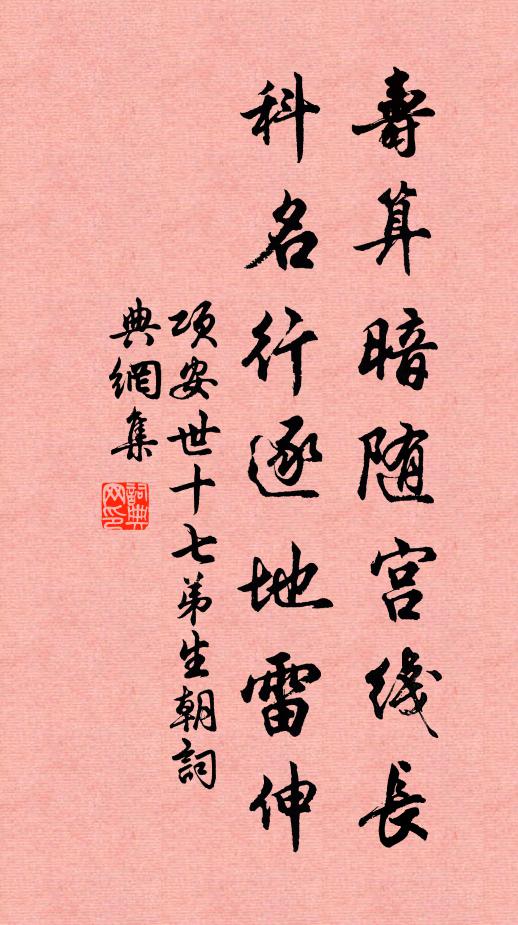 壽算暗随宫线長
科名行逐地雷伸
项安世十七弟生朝詞
典網集
詞典网印